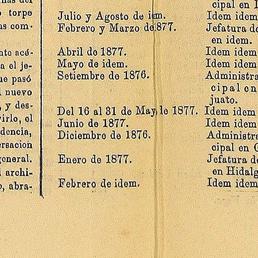 cipal en I
o torpe Julio y Agosto de idem. Idem idem
as com- Febrero y Marzo de 877. Jefatura de
en idem.
nto acé- Abril de 1877. Idem idem
a el je- Mayo de idem. Idem idem
que pasó Setiembre de 1876. Administra
l nuevo cipal en
y des- juato.
irlo, el Del 16 al 31 de May. le 1877. Idem idem
dencia, Junio de 1877. Idem idem
ersacion Diciembre de 1876. Administra
cipal en G
general. Enero de 1877. Jefatura de
l archi- en Hidalg
o, abra- Febrero de idem. Idem idem